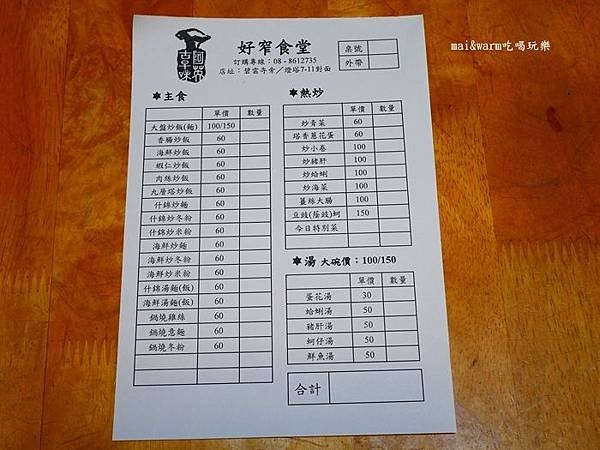 mai&warm吃喝玩樂
國英
古早味
好窄食堂
訂購專線：08 - 8612735
店址：碧雲寺旁／燈塔7-11對面
桌號
外帶
✱主食
單價 數量
大盤炒飯(麵) 100/150
香腸炒飯 60
海鮮炒飯 60
蝦仁炒飯 60
肉絲炒飯 60
九層塔炒飯 60
什錦炒麵 60
什錦炒冬粉 60
什錦炒米粉 60
海鮮炒麵 60
海鮮炒冬粉 60
海鮮炒米粉 60
什錦湯麵(飯) 60
海鮮湯麵(飯) 60
鍋燒雞絲 60
鍋燒意麵 60
鍋燒冬粉 60
✱熱炒
單價 數量
炒青菜 60
塔香蔥花蛋 60
炒小卷 100
炒豬肝 100
炒蛤蜊 100
炒海菜 100
薑絲大腸 100
豆豉(蔭豉)蚵 150
今日特別菜
✱湯 大碗價：100/150
單價 數量
蛋花湯 30
蛤蜊湯 50
豬肝湯 50
蚵仔湯 50
鮮魚湯 50
合計